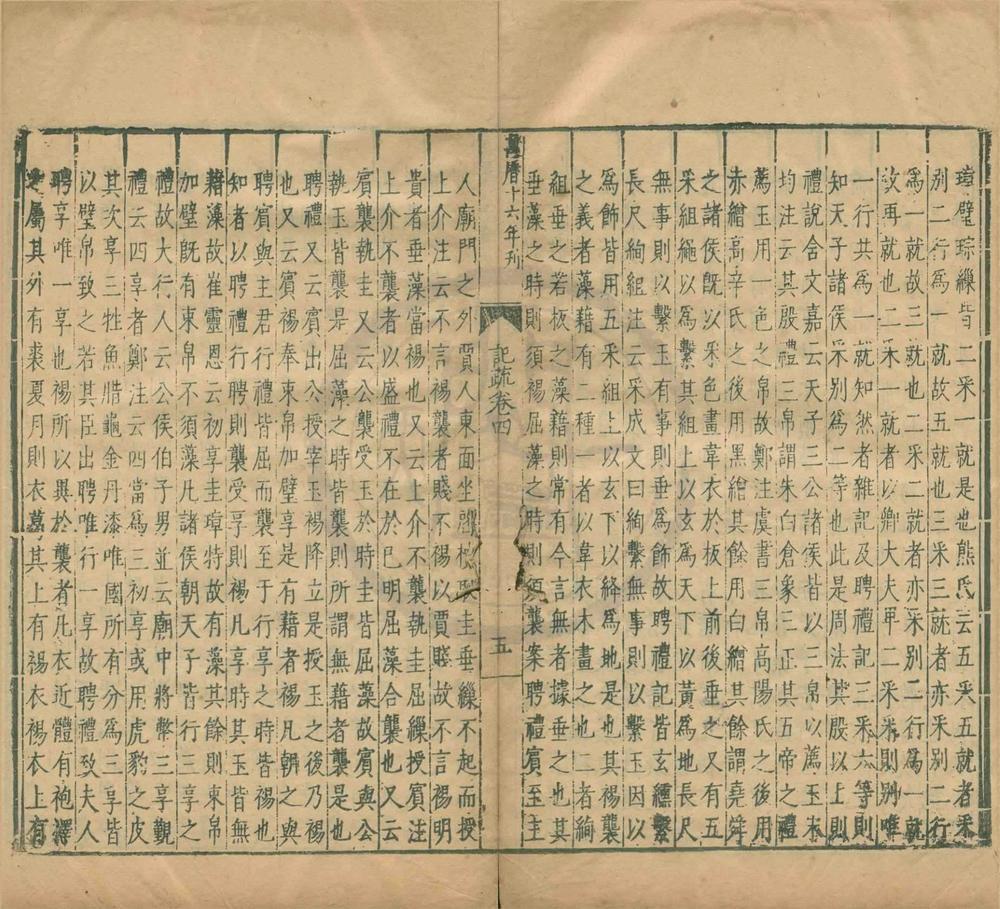 璋璧琮繅皆二采一就是也熊氏云五采五就者采
別二行爲一就故五就也三采三就者亦采別二行
爲一就故三就也二采二就者亦采別二行爲一就
故再就也二采一就者以卿大夫再二采采則別唯
一行共爲一就知然者雜記及聘禮記三采六等則
知天子諸侯采別爲二等也此是周法其殷以上則
禮說含文嘉云天子三公諸侯皆以三帛以薦玉宋
均注云其殷禮三帛謂朱白倉象三正其五帝之禮
薦玉用一色之帛故鄭注虞書三帛高陽氏之後用
赤繒高辛氏之後用黑繒其餘用白繒其餘謂堯舜
之諸侯旣以采色畫韋衣於板上前後垂之又有五
采組繩以爲繫其組上以玄爲天下以黃爲地長尺
無事則以繫玉有事則垂爲飾故聘禮記皆玄纁繫
長尺絢組注云采成文曰絢繫無事則以繫玉因以
爲飾皆用五采組上以玄下以絳爲地是也其裼襲
之義者藻藉有二種一者以韋衣木畫之也二者絢
組垂之若板之藻藉則常有今言無者據垂之也其
垂藻之時則須裼屈藻之時則須襲案聘禮賓至主
萬曆十六年刋
記疏卷四
五
人廟門之外賈人東面坐啓櫝取圭垂繅不起而授
上介注云不言裼襲者賤不裼以賈賤故不言裼明
貴者垂藻當裼也又云上介不襲執圭屈繅授賓注
上介不襲者以盛禮不在於已明屈藻合襲也又云
賓襲執圭又云公襲受玉於時圭皆屈藻故賓與公
執玉皆襲是屈藻之時皆襲則所謂無藉者襲是也
聘禮又云賓出公授宰玉裼降立是授玉之後乃裼
也又云賓裼奉束帛加璧享是有藉者裼凡朝之與
聘賓與主君行禮皆屈而襲至于行享之時皆裼也
知者以聘禮行聘則襲受享則裼凡享時其玉皆無
藉藻故崔靈恩云初享圭璋特故有藻其餘則束帛
加璧旣有束帛不須藻凡諸侯朝天子皆行三享之
禮故大行人云公侯伯子男並云廟中將幣三享覲
禮云四享者鄭注云四當爲三初享或用虎豹之皮
其次享三牲魚腊龜金丹漆唯國所有分爲三享皆
以璧帛致之若其臣出聘唯行一享故聘禮致夫人
聘享唯一享也裼所以異於襲者凡衣近體有袍澤
之屬其外有裘夏月則衣葛其上有裼衣裼衣上有